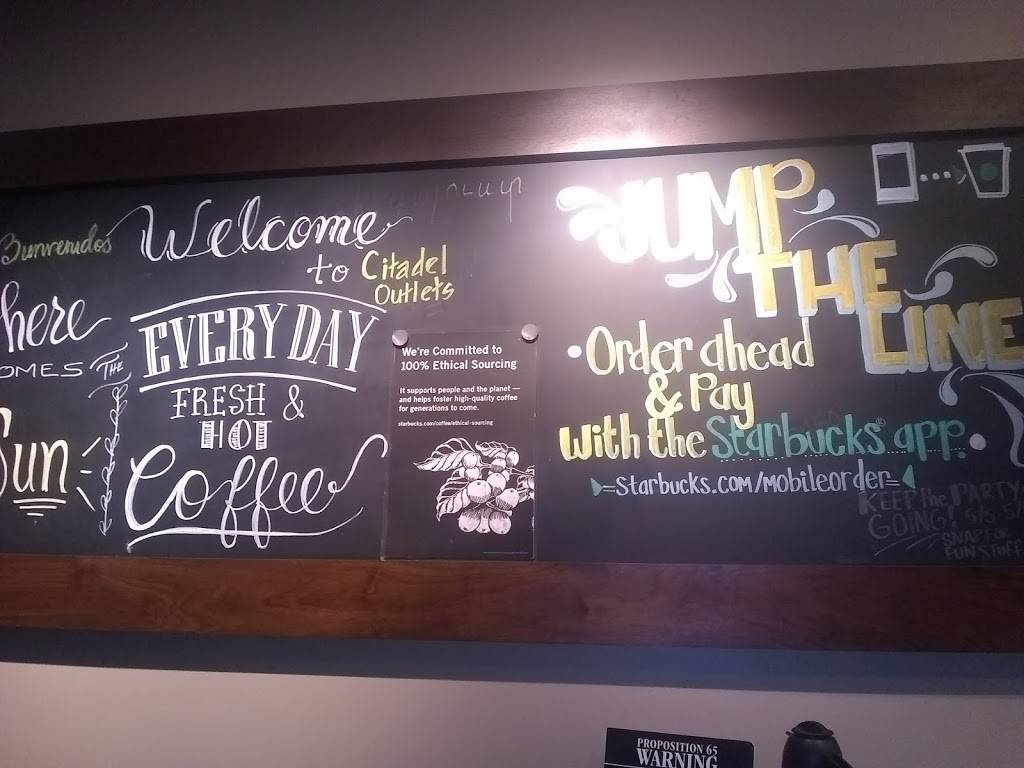 Bienvenidos
here
OMES THE
Sun
Welcome
to Citadel
Outlets
EVERY DAY
FRESH &
HOT
Coffee
We're Committed to
100% Ethical Sourcing
It supports people and the planet —
and helps foster high-quality coffee
for generations to come.
starbucks.com/coffee/ethical-sourcing
JUMP
THE
LINE
• Order ahead
& Pay
with the Starbucks® app. •
=starbucks.com/mobileorder=
KEEP the PARTY
GOING! 5/3, 5/
SNAP FOR
FUN STUFF
PROPOSITION 65
WARNING